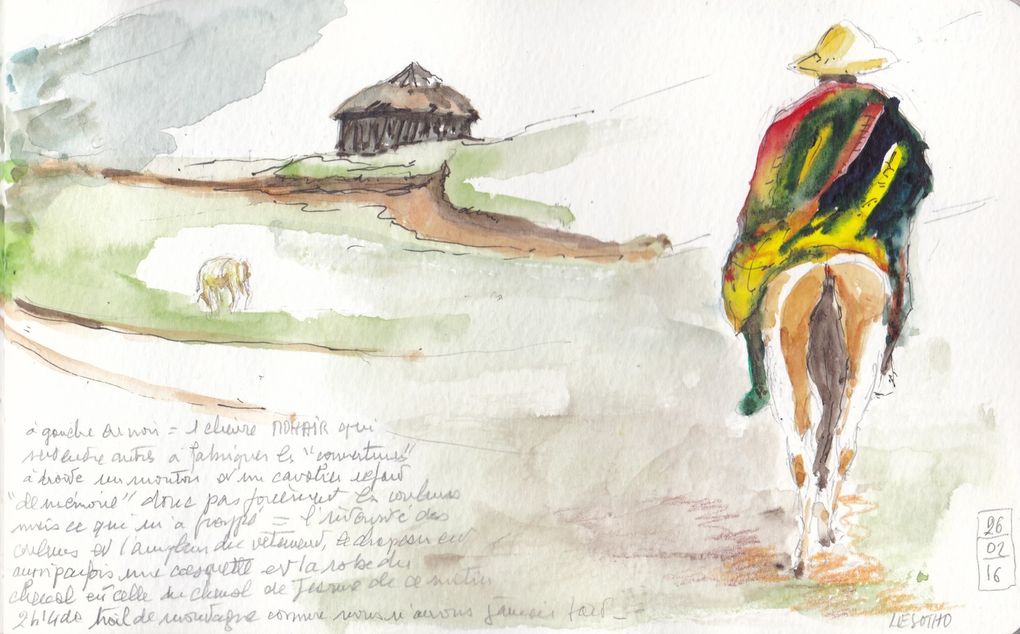 à gauche en noir = 1 chèvre MOHAIR qui
sert entre autres à fabriquer les "couvertures"
à droite un mouton et un cavalier refait
"de mémoire" donc pas forcément les couleurs
mais ce qui m'a frappé = l'intensité des
couleurs et l'ampleur du vêtement, le chapeau est
aussi parfois une casquette et la robe du
cheval est celle du cheval de de ce matin
2h40 de montagne comme nous n'avons jamais fait _
26
02
16
LESOTHO